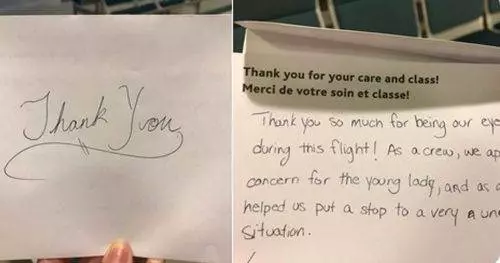 Thank You
Thank you for your care and class!
Merci de votre soin et classe!
Thank you so much for being our eye
during this flight! As a crew, we ap
concern for the young lady, and as a
helped us put a stop to a very un
situation.